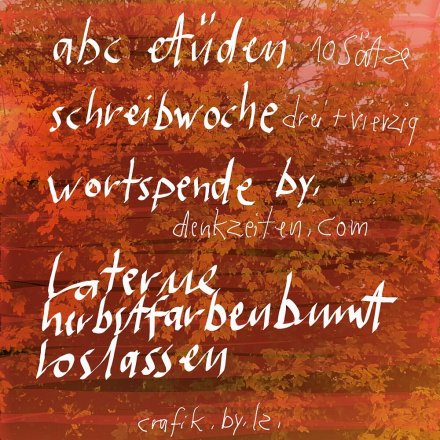 abc etüden 10 Sätze
schreibwoche drei + vierzig
wortspende by.
denkzeiten.com
Laterne
herbstfarbenbunt
loslassen
grafik.by.lz.